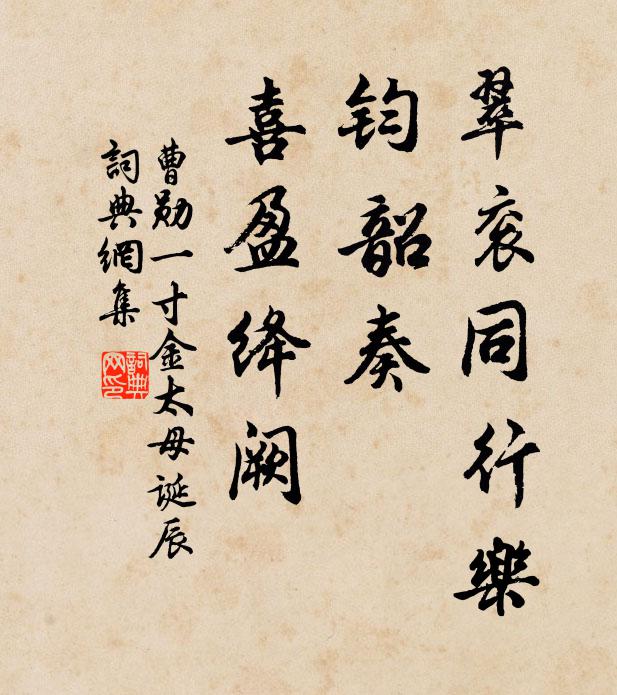 翠衮同行樂
钧韶奏
喜盈绛阙
曹勋一寸金太母诞辰
詞典網集
詞典网印